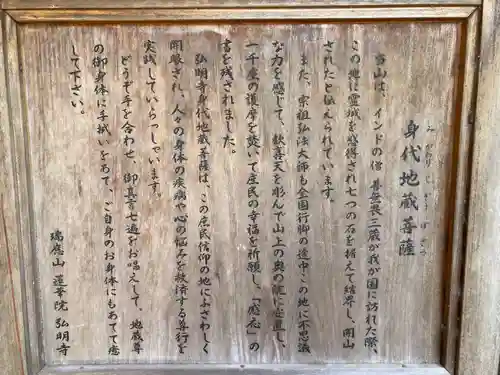 身代地蔵菩薩
みがわりじぞうぼさつ
当山は、インドの僧 善無畏三蔵が我が国に訪れた際、
この地に霊域を感得され七つの石を据えて結界し、開山
されたと伝えられています。
また、宗祖弘法大師も全国行脚の途中、この地に不思議
な力を感じて、歓喜天を彫んで山上の奥の院に安置し、
一千座の護摩を焚いて庶民の幸福を祈願し、「感応」の
書を残されました。
弘明寺身代地蔵菩薩は、この庶民信仰の地にふさわしく
開眼され、人々の身体の疾病や心の悩みを救済する尊行を
実践していらっしゃいます。
どうぞ手を合わせ、御真言七遍をお唱えして、地蔵尊
の御身体に手拭いをあて、ご自身のお身体にもあてて癒
して下さい。
瑞應山 蓮華院 弘明寺